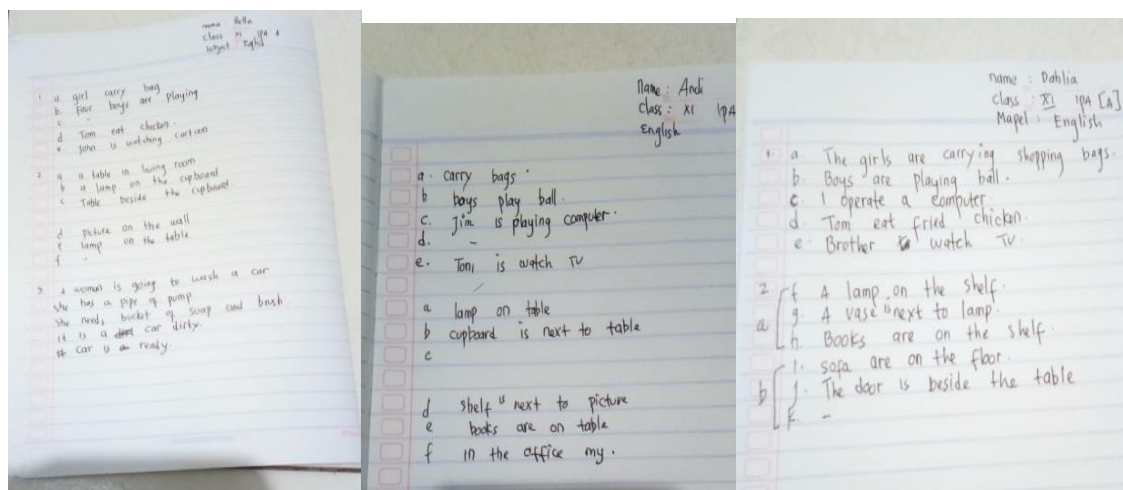 name Bella
class XI IPA A
subject English
1. a girl carry bag
b. Four boys are playing
c -
d Tom eat chicken.
e John is watching cartoon
2. a a table in living room
b a lamp on the cupboard
c Table beside the cupboard
d picture on the wall
e lamp on the table
f -
3 A woman is going to wash a car
she has a pipe of pump
she needs bucket of soap and brush
it is a car dirty.
car is ready.
Name : Andi
Class : XI IPA
English
a. carry bags.
b boys play ball.
c. Jim is playing computer.
d. -
e. Toni is watch TV
a lamp on table
b cupboard is next to table
c
d shelf is next to picture
e books are on table
f in the office my.
name : Dahlia
Class : XI IPA [A]
Mapel : English
1. a. The girls are carrying shopping bags.
b. Boys are playing ball.
c. I operate a computer
d. Tom eat fried chicken.
e. Brother watch TV.
2 f A lamp on the shelf.
a g. A vase is next to lamp.
h. Books are on the shelf.
i. sofa are on the floor.
b j. The door is beside the table
k. -